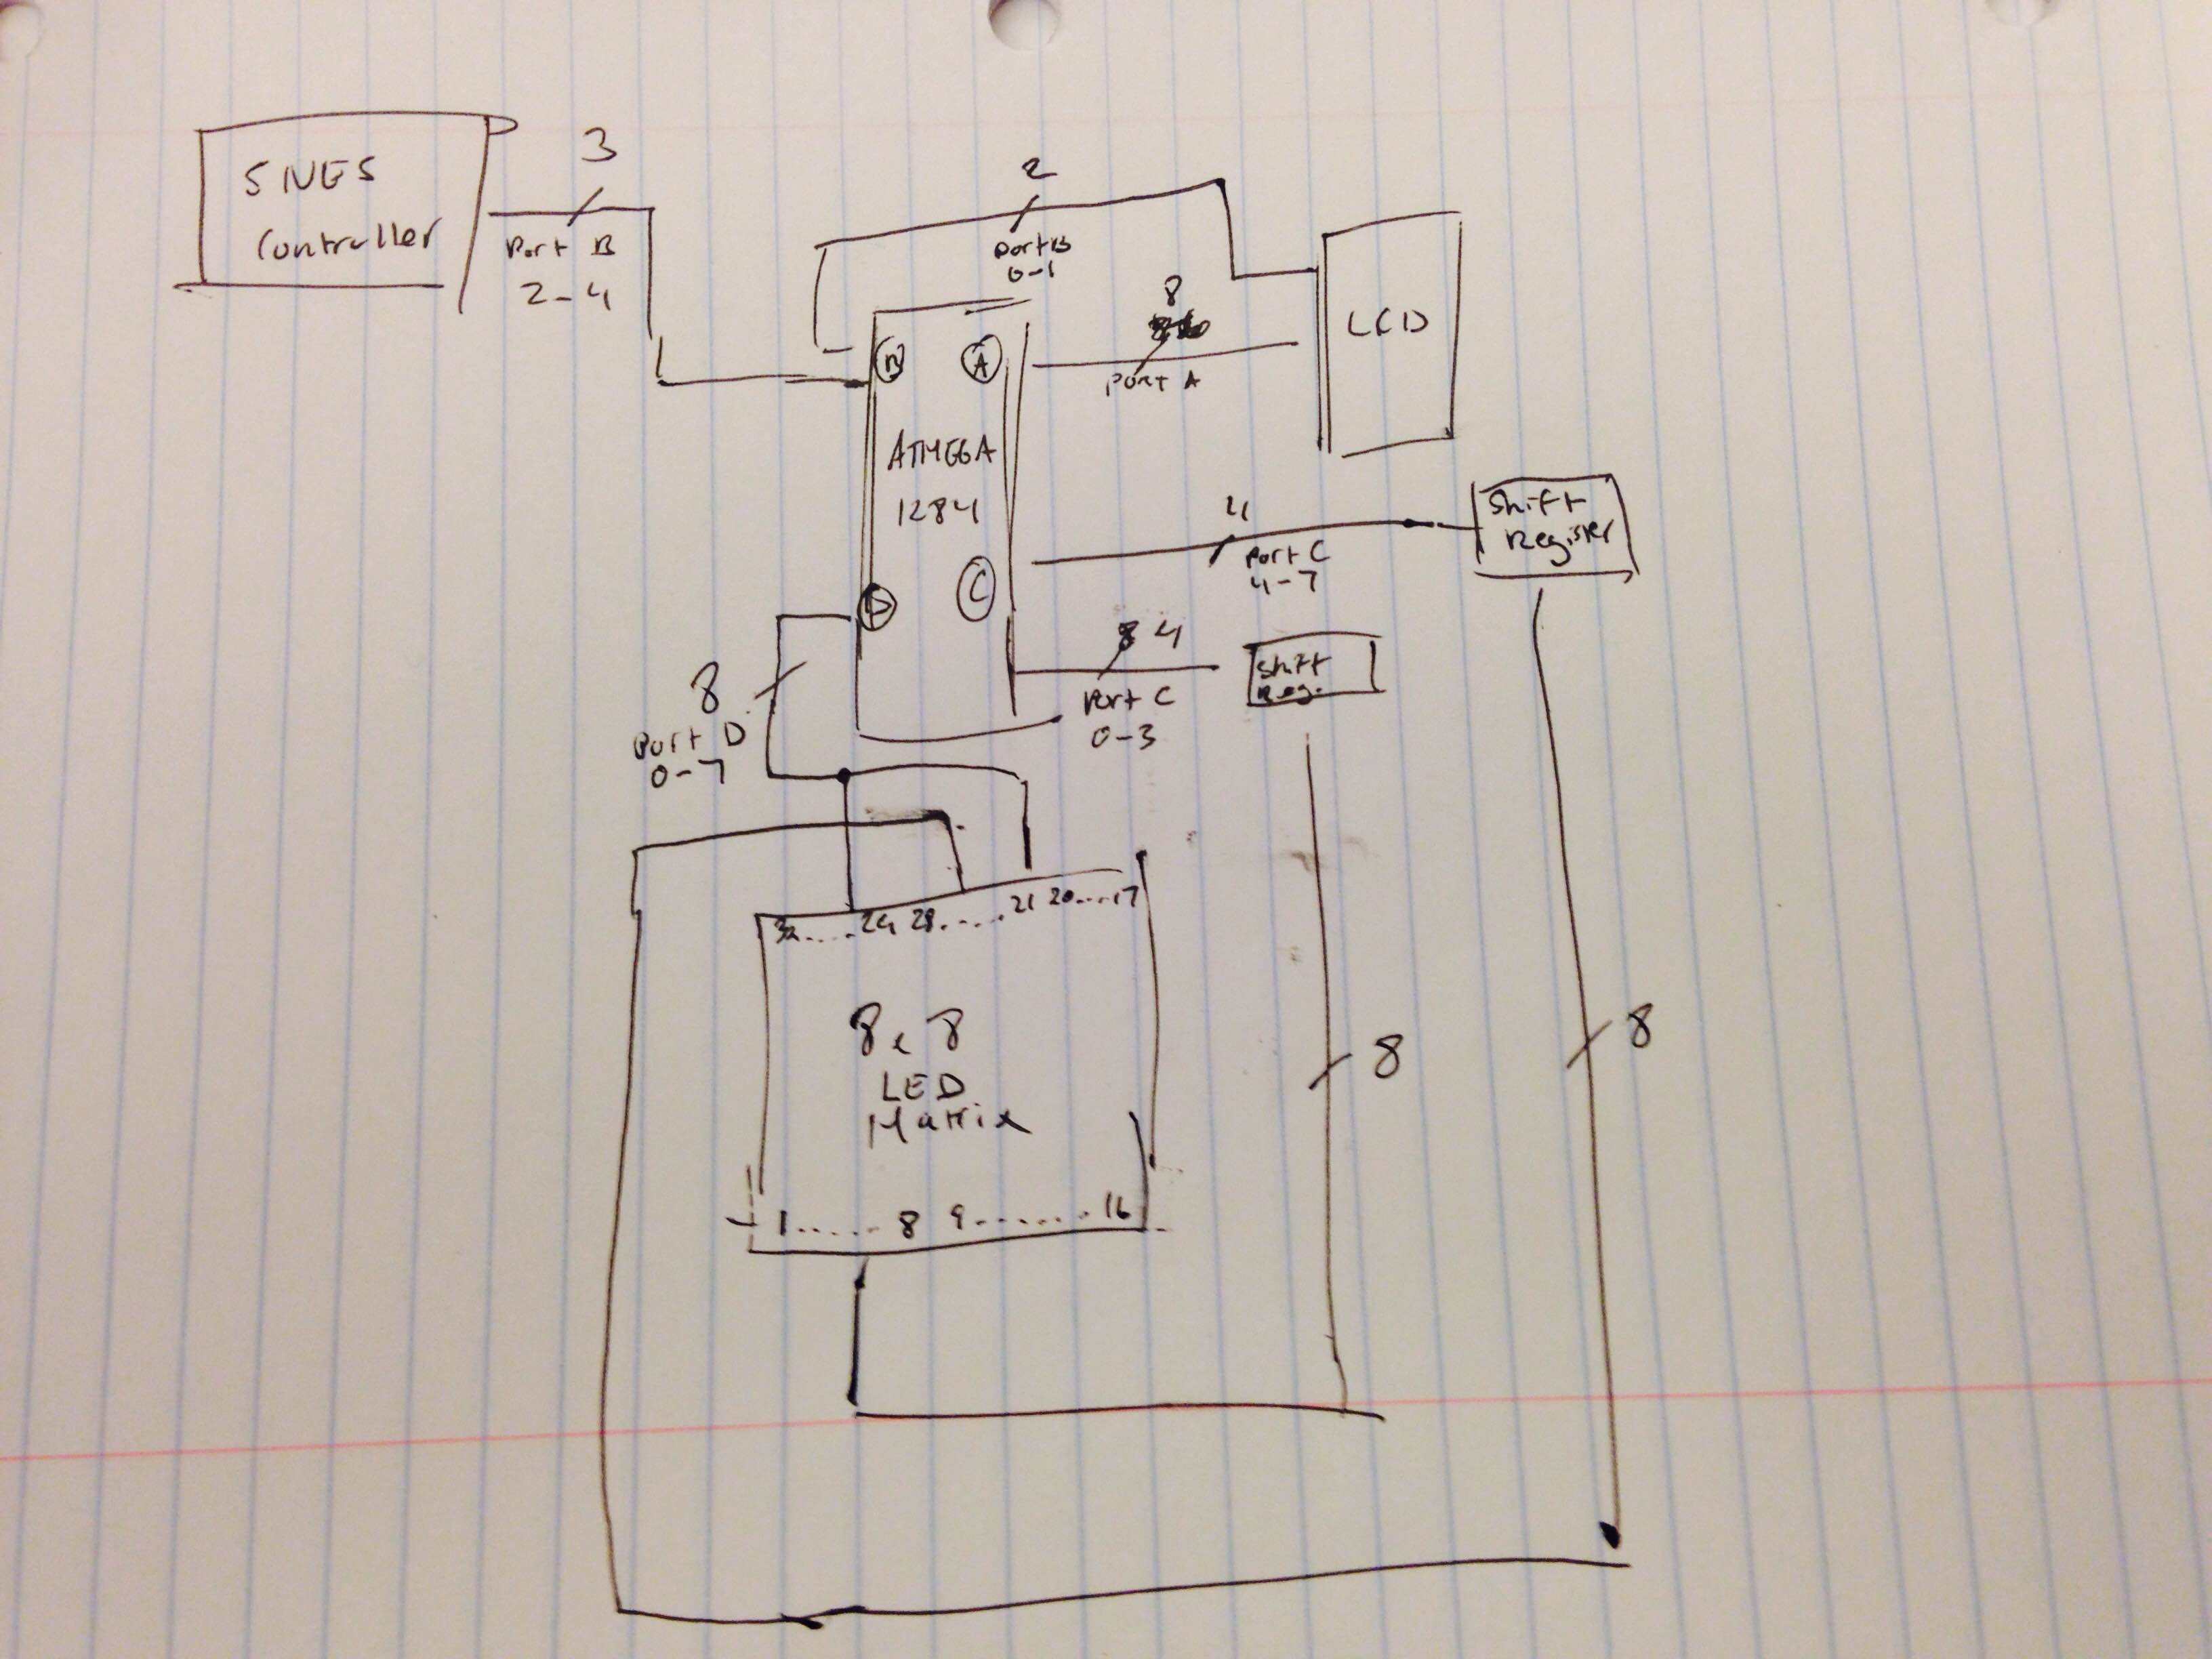 SNES
Controller
3
Port B
2-4
2
Port B
0-1
8
Port A
LCD
B
A
ATMEGA
1284
D
C
4
Port C
4-7
Shift
Register
4
Port C
0-3
Shift
Reg.
8
Port D
0-7
32.....29 28......21 20....17
8x8
LED
Matrix
1......8 9.......16
8
8